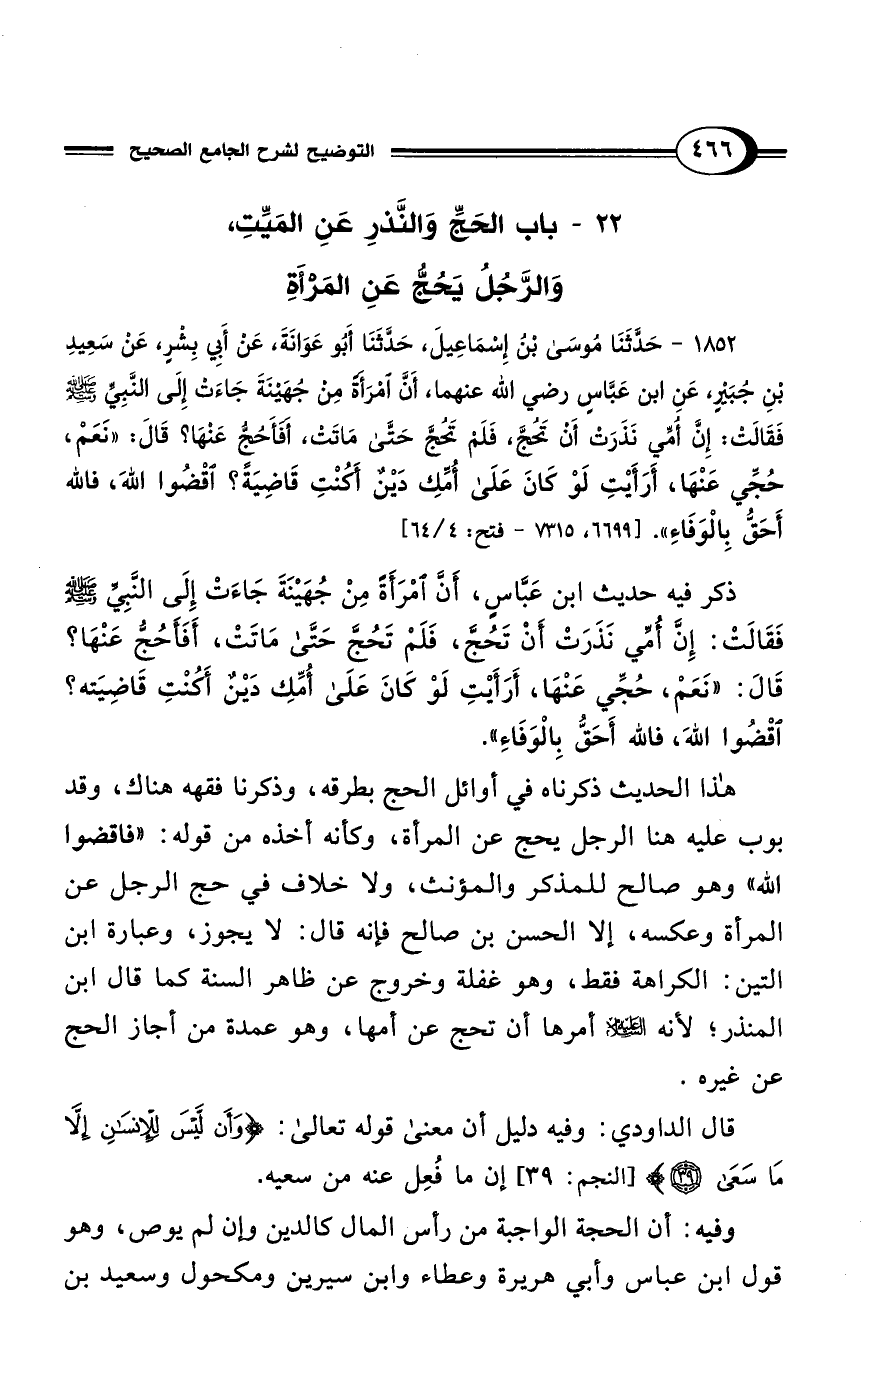 ٤٦٦ التوضيح لشرح الجامع الصحيح
٢٢ - باب الحَجِّ وَالنَّذرِ عَنِ المَيِّتِ،
وَالرَّجُلُ يَحُجُّ عَنِ المَرْأَةِ
١٨٥٢ - حَدَّثَنَا مُوسَىٰ بْنُ إِسْمَاعِيلَ، حَدَّثَنَا أَبُو عَوَانَةَ، عَنْ أَبِي بِشْرٍ، عَنْ سَعِيدِ
بْنِ جُبَيْرٍ، عَنِ ابن عَبَّاسٍ رضي الله عنهما، أَنَّ ٱمْرَأَةً مِنْ جُهَيْنَةَ جَاءَتْ إِلَى النَّبِيِّ ﷺ
فَقَالَتْ: إِنَّ أُمِّي نَذَرَتْ أَنْ تَحُجَّ، فَلَمْ تَحُجَّ حَتَّىٰ مَاتَتْ، أَفَأَحُجُّ عَنْهَا؟ قَالَ: «نَعَمْ،
حُجِّي عَنْهَا، أَرَأَيْتِ لَوْ كَانَ عَلَىٰ أُمِّكِ دَيْنٌ أَكُنْتِ قَاضِيَةً؟ ٱقْضُوا اللهَ، فالله
أَحَقُّ بِالْوَفَاءِ». [٦٦٩٩، ٧٣١٥ - فتح: ٤/ ٦٤]
ذكر فيه حديث ابن عَبَّاسٍ، أَنَّ ٱمْرَأَةً مِنْ جُهَيْنَةَ جَاءَتْ إِلَى النَّبِيِّ ﷺ
فَقَالَتْ: إِنَّ أُمِّي نَذَرَتْ أَنْ تَحُجَّ، فَلَمْ تَحُجَّ حَتَّىٰ مَاتَتْ، أَفَأَحُجُّ عَنْهَا؟
قَالَ: «نَعَمْ، حُجِّي عَنْهَا، أَرَأَيْتِ لَوْ كَانَ عَلَىٰ أُمِّكِ دَيْنٌ أَكُنْتِ قَاضِيَته؟
ٱقْضُوا اللهَ، فالله أَحَقُّ بِالْوَفَاءِ».
هٰذا الحديث ذكرناه في أوائل الحج بطرقه، وذكرنا فقهه هناك، وقد
بوب عليه هنا الرجل يحج عن المرأة، وكأنه أخذه من قوله: «فاقضوا
الله» وهو صالح للمذكر والمؤنث، ولا خلاف في حج الرجل عن
المرأة وعكسه، إلا الحسن بن صالح فإنه قال: لا يجوز، وعبارة ابن
التين: الكراهة فقط، وهو غفلة وخروج عن ظاهر السنة كما قال ابن
المنذر؛ لأنه عليه السلام أمرها أن تحج عن أمها، وهو عمدة من أجاز الحج
عن غيره .
قال الداودي: وفيه دليل أن معنىٰ قوله تعالىٰ: ﴿وَأَن لَّيْسَ لِلْإِنسَـٰنِ إِلَّا
مَا سَعَىٰ ٣٩﴾ [النجم: ٣٩] إن ما فُعِل عنه من سعيه.
وفيه: أن الحجة الواجبة من رأس المال كالدين وإن لم يوص، وهو
قول ابن عباس وأبي هريرة وعطاء وابن سيرين ومكحول وسعيد بن